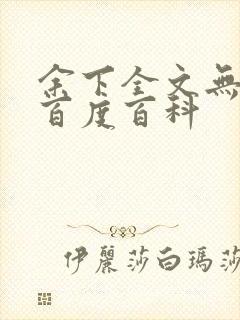 余下全文無
百度百科
伊麗莎白瑪莎